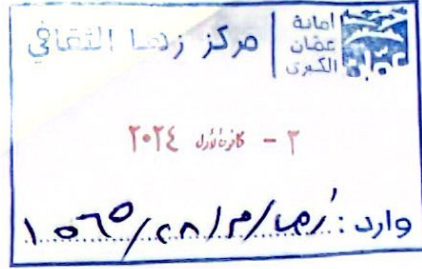 أمانة
عمّان
الكبرى
مركز زها الثقافي
٢ - كانون الأول ٢٠٢٤
وارد: زها/م/٢٨/١٥٦٥